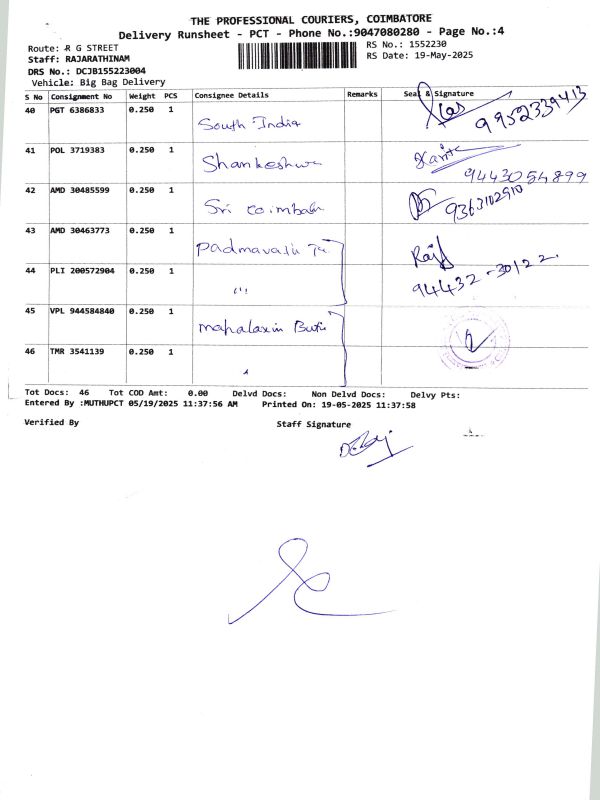 THE PROFESSIONAL COURIERS, COIMBATORE
Delivery Runsheet - PCT - Phone No.:9047080280 - Page No.:4
Route: R G STREET
RS No.: 1552230
Staff: RAJARATHINAM
RS Date: 19-May-2025
DRS No.: DCJB155223004
Vehicle: Big Bag Delivery
S No Consignment No Weight PCS Consignee Details Remarks Seal & Signature
40 PGT 6386833 0.250 1 South India 9952339413
41 POL 3719383 0.250 1 Shankeshwa 9443054899
42 AMD 30485599 0.250 1 Sri Coimbatu 9363102910
43 AMD 30463773 0.250 1 Padmavathi
44 PLI 200572904 0.250 1 "' 94432-30122
45 VPL 944584840 0.250 1 mahalaxmi
46 TMR 3541139 0.250 1
Tot Docs: 46 Tot COD Amt: 0.00 Delvd Docs: Non Delvd Docs: Delvy Pts:
Entered By :MUTHUPCT 05/19/2025 11:37:56 AM Printed On: 19-05-2025 11:37:58
Verified By Staff Signature